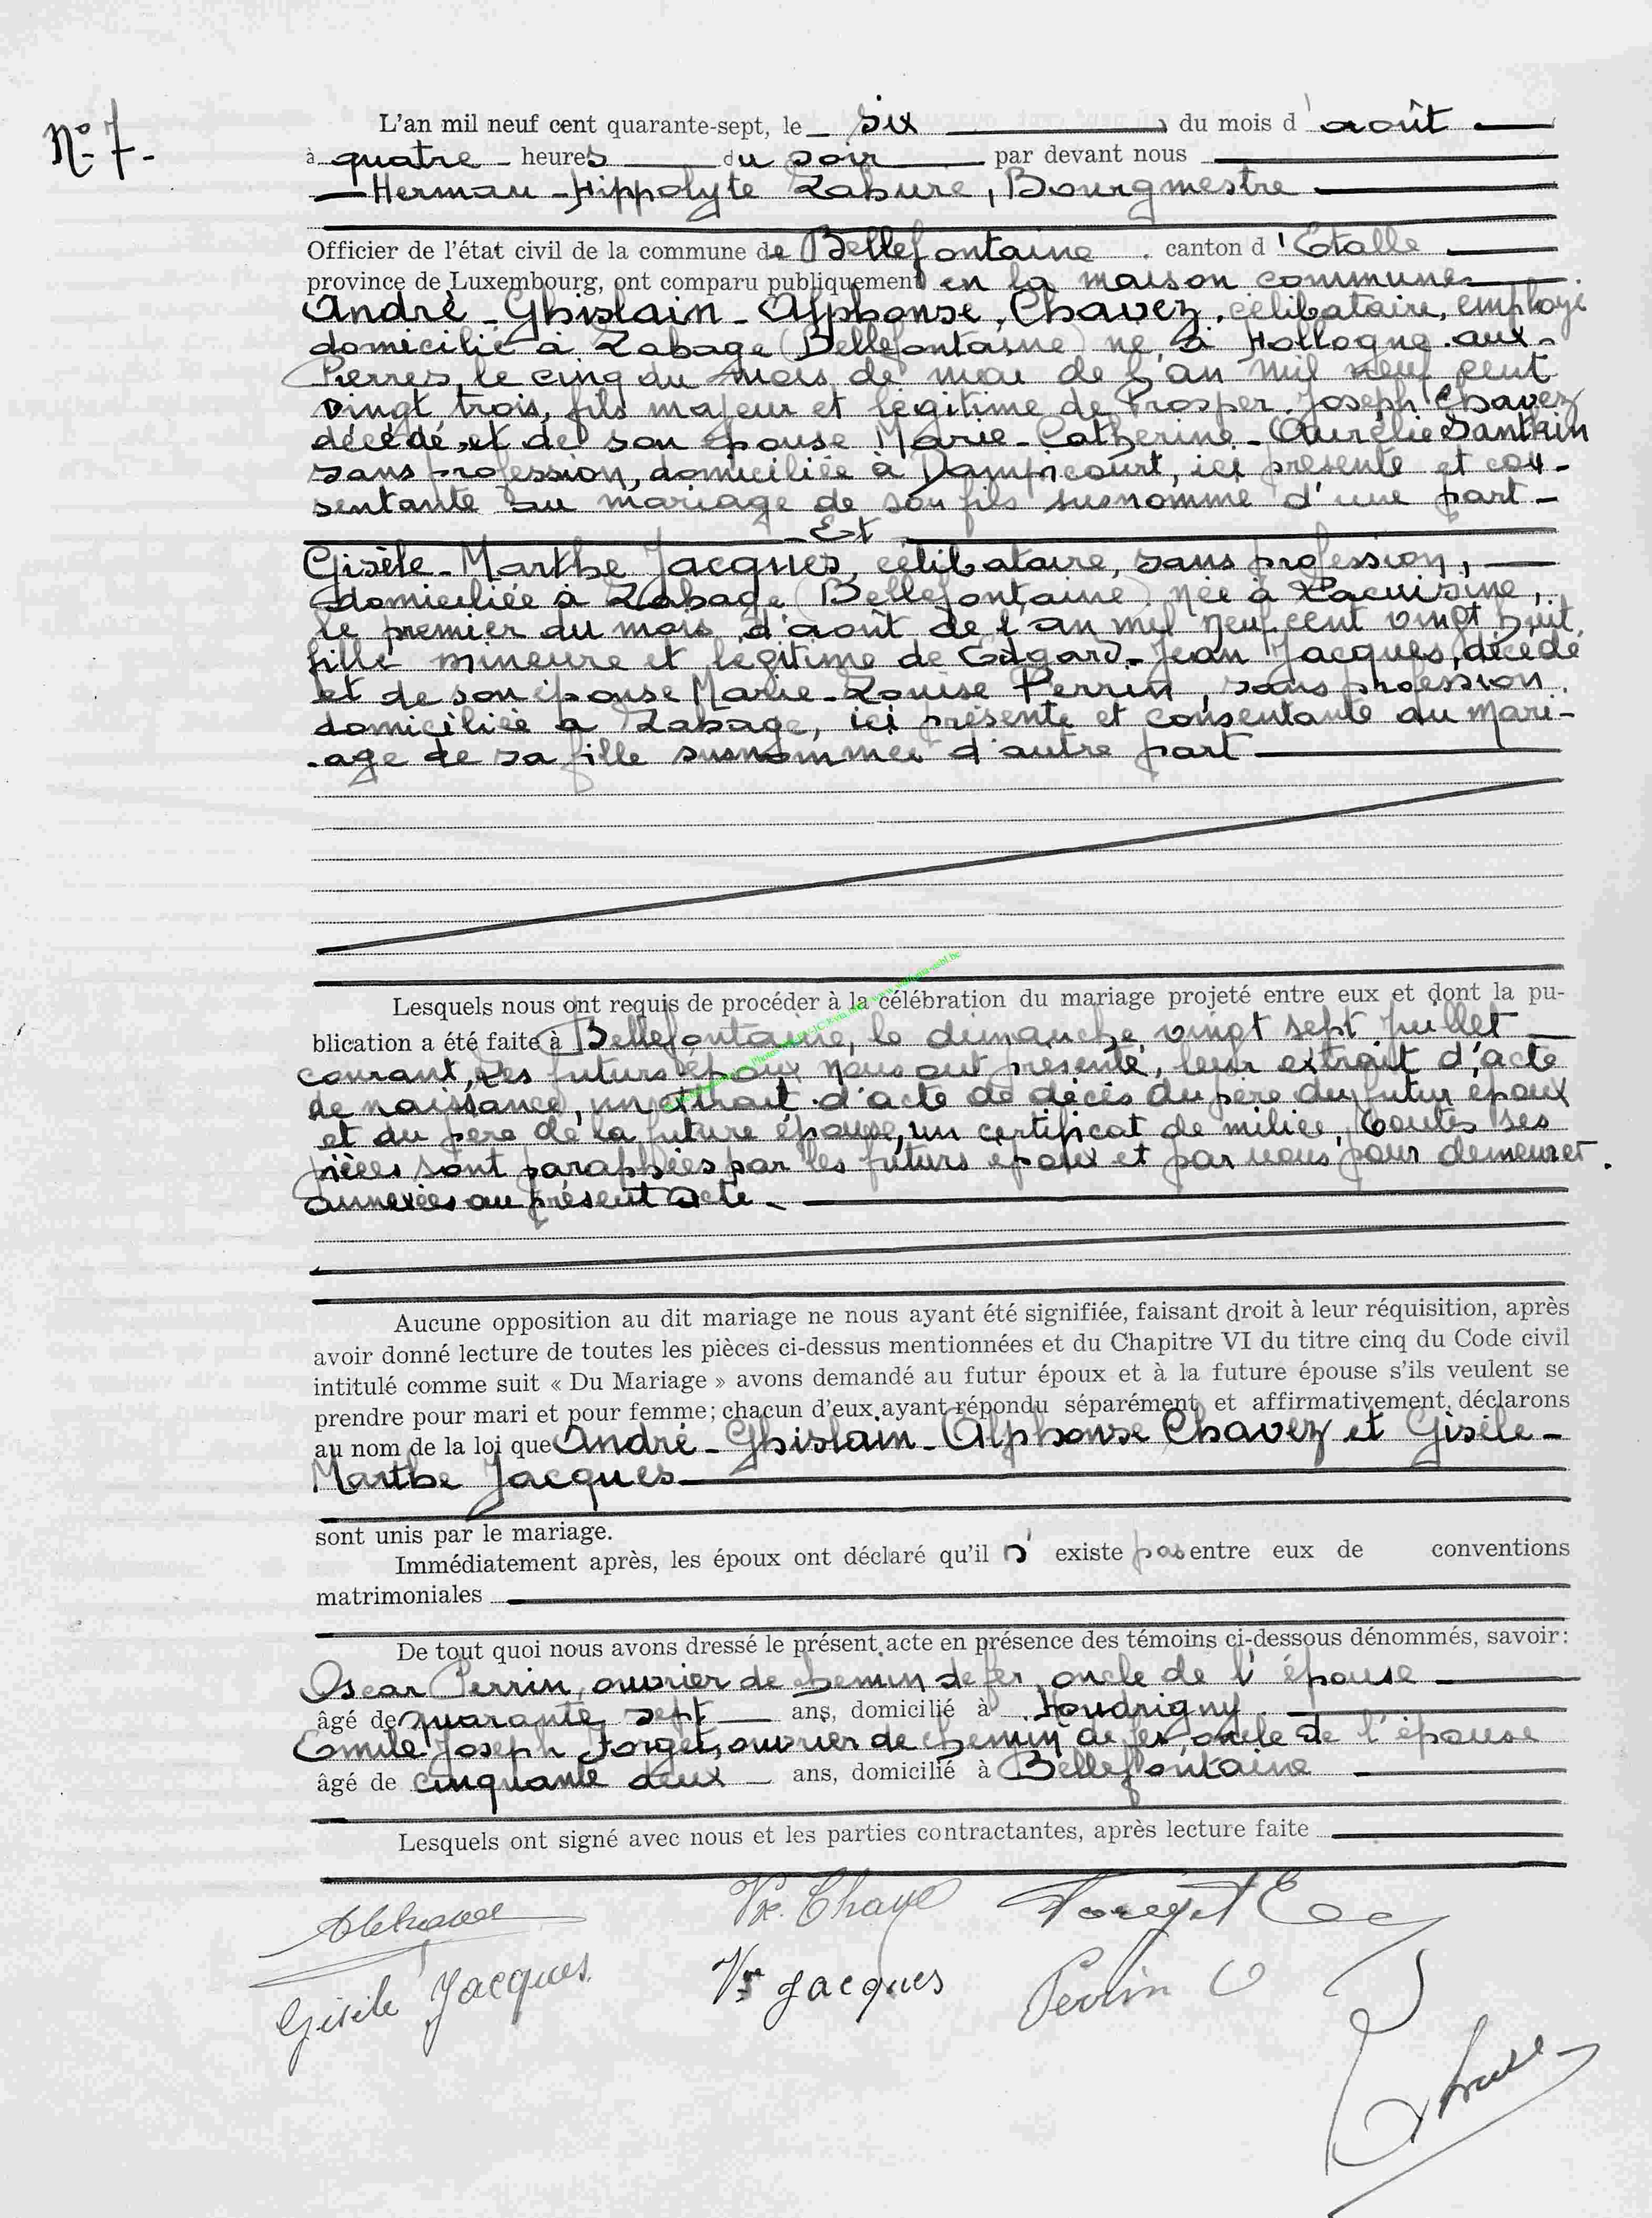 N° 7.-
L'an mil neuf cent quarante-sept, le six du mois d'août
à quatre heures du soir par devant nous
Herman-Hippolyte Labure, Bourgmestre
Officier de l'état civil de la commune de Bellefontaine canton d'Etalle
province de Luxembourg, ont comparu publiquement en la maison commune
André-Ghislain-Alphonse Chavez, célibataire, employé
domicilié à Labage (Bellefontaine) né à Hollogne-aux-
Pierres, le cinq du mois de mai de l'an mil neuf cent
vingt trois, fils majeur et légitime de Prosper-Joseph Chavez
décédé, et de son épouse Marie-Catherine-Aurélie Santkin
sans profession, domiciliée à Dampicourt, ici présente et con-
sentante au mariage de son fils susnommé d'une part-
-Et
Gisèle-Marthe Jacques, célibataire, sans profession,
domiciliée à Labage (Bellefontaine) née à Lacuisine,
le premier du mois d'août de l'an mil neuf cent vingt huit,
fille mineure et légitime de Edgard-Jean Jacques, décédé
et de son épouse Marie-Louise Perrin, sans profession
domiciliée à Labage, ici présente et consentante au mari-
age de sa fille susnommée d'autre part
Lesquels nous ont requis de procéder à la célébration du mariage projeté entre eux et dont la pu-
blication a été faite à Bellefontaine, le dimanche vingt sept juillet
courant, Les futurs époux nous ont présenté, leur extrait d'acte
de naissance, un extrait d'acte de décès du père du futur époux
et du père de la future épouse, un certificat de milice, toutes ses
pièces sont paraphées par les futurs époux et par nous pour demeurer
annexées au présent acte.
Aucune opposition au dit mariage ne nous ayant été signifiée, faisant droit à leur réquisition, après
avoir donné lecture de toutes les pièces ci-dessus mentionnées et du Chapitre VI du titre cinq du Code civil
intitulé comme suit « Du Mariage » avons demandé au futur époux et à la future épouse s'ils veulent se
prendre pour mari et pour femme; chacun d'eux ayant répondu séparément et affirmativement, déclarons
au nom de la loi que André-Ghislain-Alphonse Chavez et Gisèle-
Marthe Jacques
sont unis par le mariage.
Immédiatement après, les époux ont déclaré qu'il n'existe pas entre eux de conventions
matrimoniales
De tout quoi nous avons dressé le présent acte en présence des témoins ci-dessous dénommés, savoir:
Oscar Perrin, ouvrier de chemin de fer, oncle de l'épouse
âgé de quarante sept ans, domicilié à Houdrigny
Emile Joseph Forget, ouvrier de chemin de fer, oncle de l'épouse
âgé de cinquante deux ans, domicilié à Bellefontaine
Lesquels ont signé avec nous et les parties contractantes, après lecture faite
Forget E
Gisèle Jacques
Vve Jacques
Perrin O